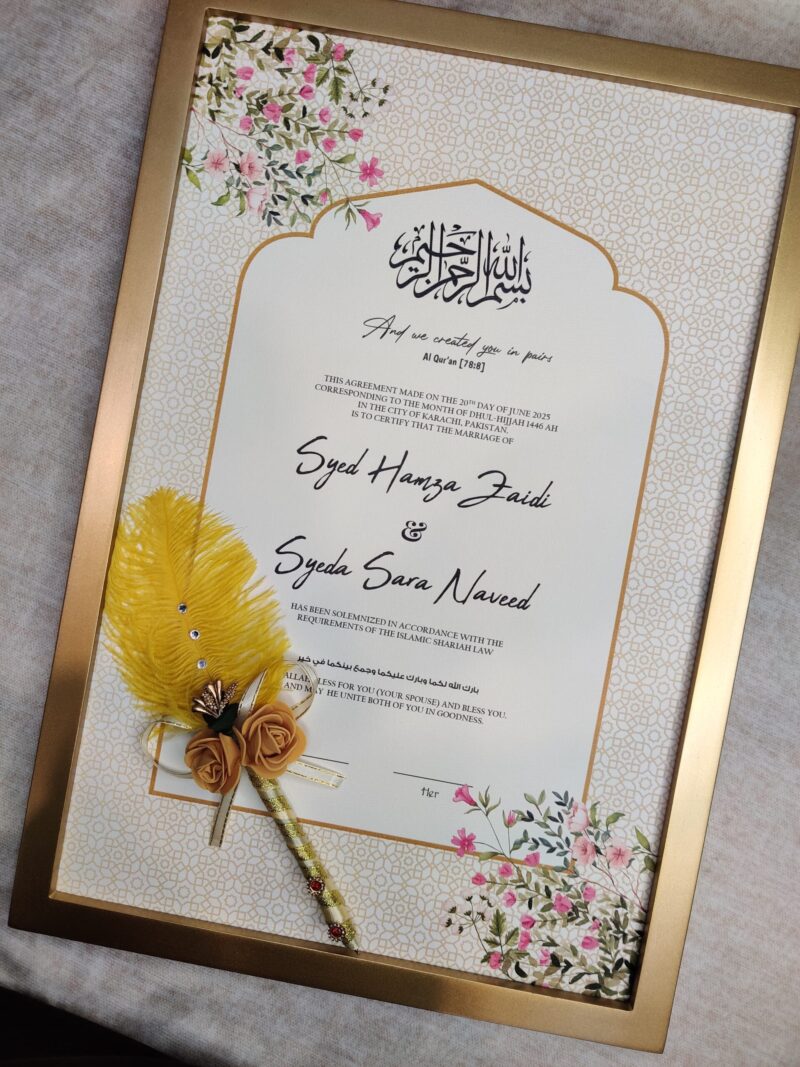 بسم الله الرحمن الرحيم
And we created you in pairs
Al Qur'an [78:8]
THIS AGREEMENT MADE ON THE 20TH DAY OF JUNE 2025
CORRESPONDING TO THE MONTH OF DHUL-HIJJAH 1446 AH
IN THE CITY OF KARACHI, PAKISTAN,
IS TO CERTIFY THAT THE MARRIAGE OF
Syed Hamza Zaidi
&
Syeda Sara Naveed
HAS BEEN SOLEMNIZED IN ACCORDANCE WITH THE
REQUIREMENTS OF THE ISLAMIC SHARIAH LAW
بارك الله لكما وبارك عليكما وجمع بينكما في خير
ALLAH BLESS FOR YOU (YOUR SPOUSE) AND BLESS YOU,
AND MAY HE UNITE BOTH OF YOU IN GOODNESS.
Her